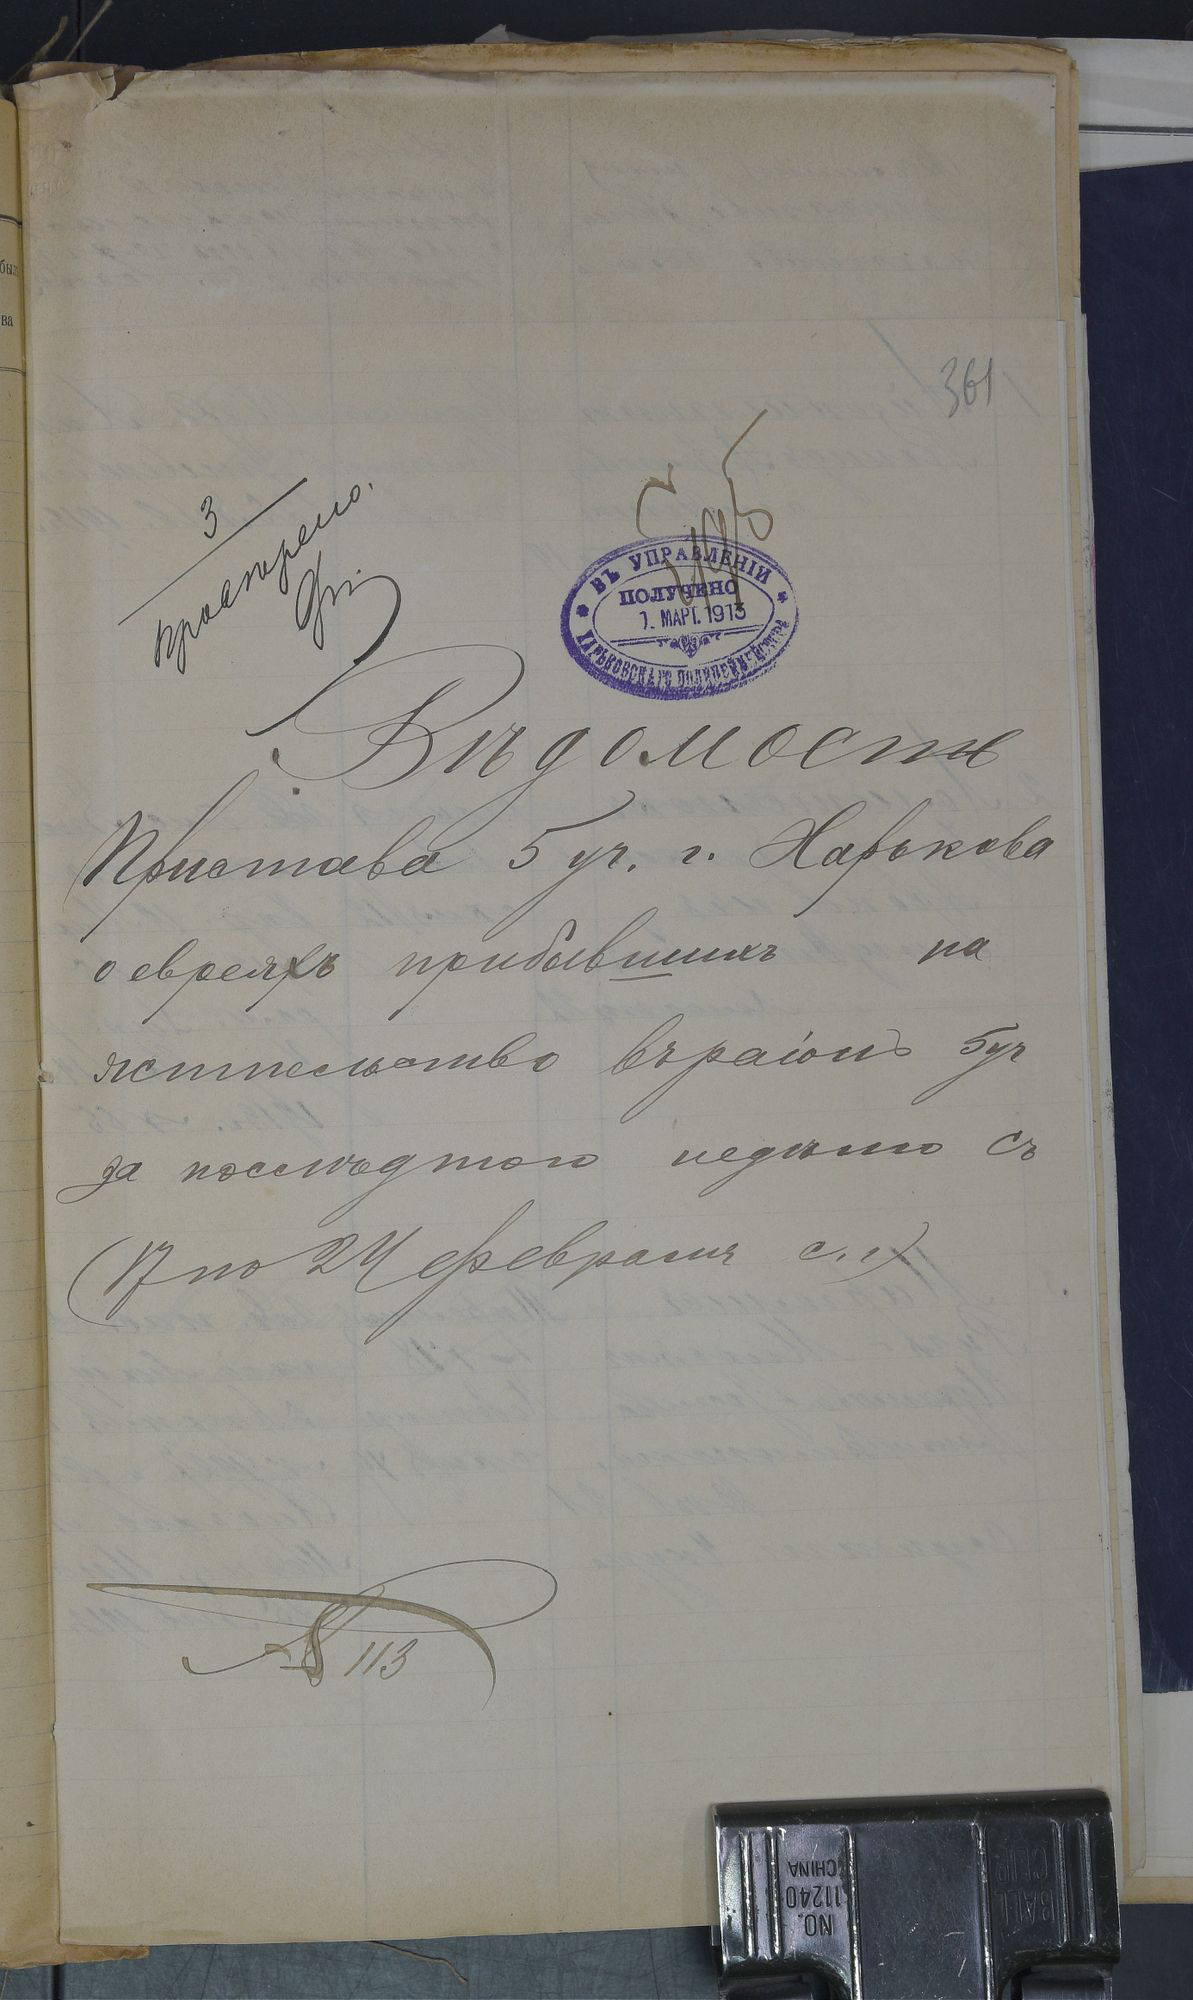 361
3
просмотрено.
ВЪ УПРАВЛЕНІИ
ПОЛУЧЕНО
1. МАРТ. 1913
ХАРЬКОВСКАГО ПОЛИЦЕЙМЕЙСТЕРА
Вѣдомость
Пристава 5 уч. г. Харькова
о евреяхъ прибывшихъ на
жительство въ раіонъ 5 уч
за послѣднюю недѣлю съ
(17 по 24 февраля с. г.)
№ 113
NO.
11240
CHINA
BALL
CLIP